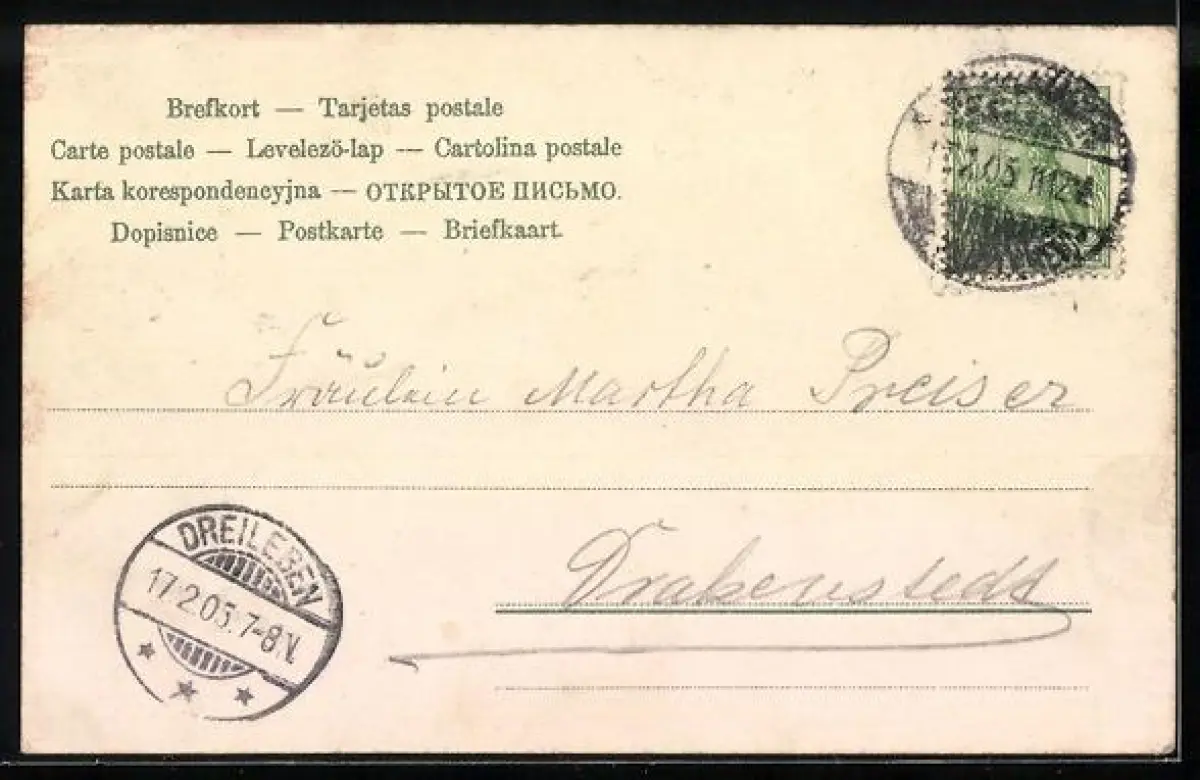 Brefkort — Tarjetas postale
Carte postale — Levelező-lap — Cartolina postale
Karta korespondencyjna — ОТКРЫТОЕ ПИСЬМО.
Dopisnice — Postkarte — Briefkaart.
Fräulein Martha Preiser
DREILEBEN
17.2.05.7-8V.
Drakenstedt